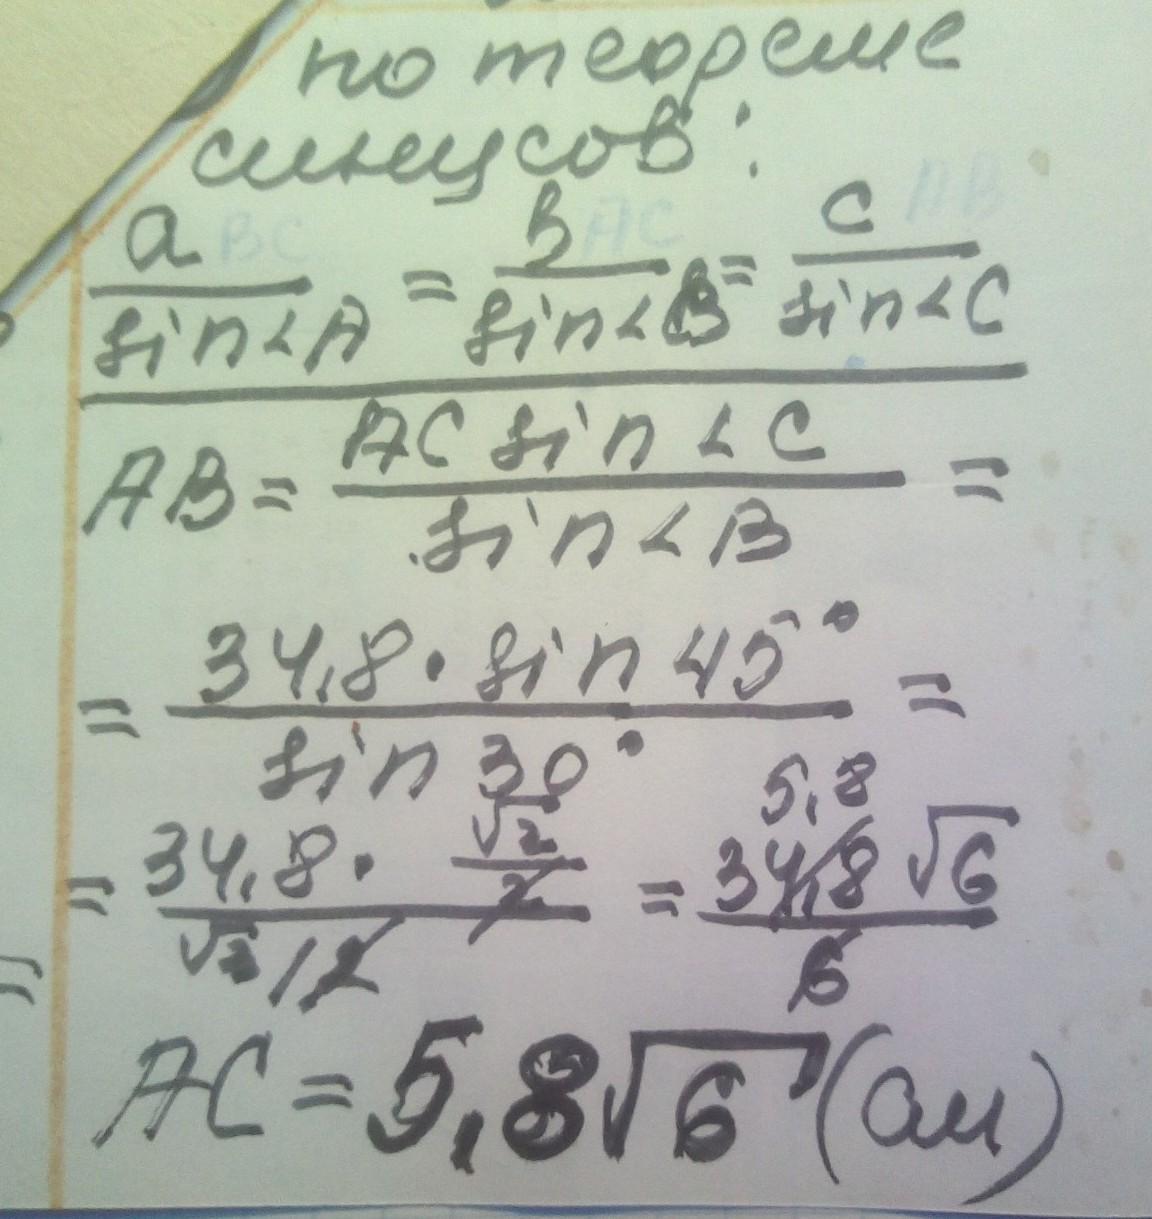 по теореме
синусов:
a BC / sin<A = b AC / sin<B = c AB / sin<C
AB = AC sin<C / sin<B =
= 34,8 · sin 45° / sin 30° =
= 34,8 · √2/2 / √3/2 = 5,8 34,8 √6 / 6
AC = 5,8√6 (см)